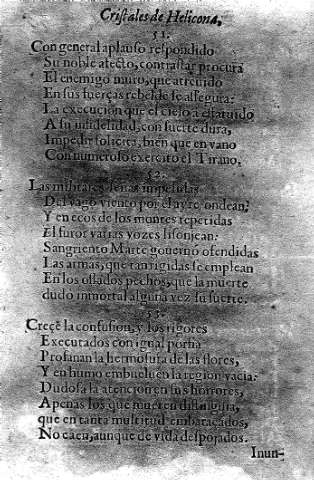 Cristales de Helicona,
51.
Con general aplauso respondido
Su noble afecto, contrastar procura
El enemigo muro, que atreuido
En sus fuerças rebelde se assegura:
La execucion que el cielo a estatuido
A su infidelidad, con suerte dura,
Impedir solicita, bien que en vano
Con numeroso exercito el Tirano.
52.
Las militares señas impelidas
Del vago viento por el ayre ondean;
Y en ecos de los montes repetidas
El furor varias vozes lisonjean:
Sangriento Marte gouernò ofendidas
Las armas, que tan rigidas se emplean
En los ossados pechos, que la muerte
dudo inmortal alguna vez su suerte.
53.
Creçe la confusion, y los rigores
Executados con igual porfia
Profanan la hermosura de las flores,
Y en humo embueluen la region vacia:
Dudosa la atencion en sus horrores,
Apenas los que mueren distinguia,
que en tanta multitud embaraçados,
No caen, aunque de vida despojados.
Inun-